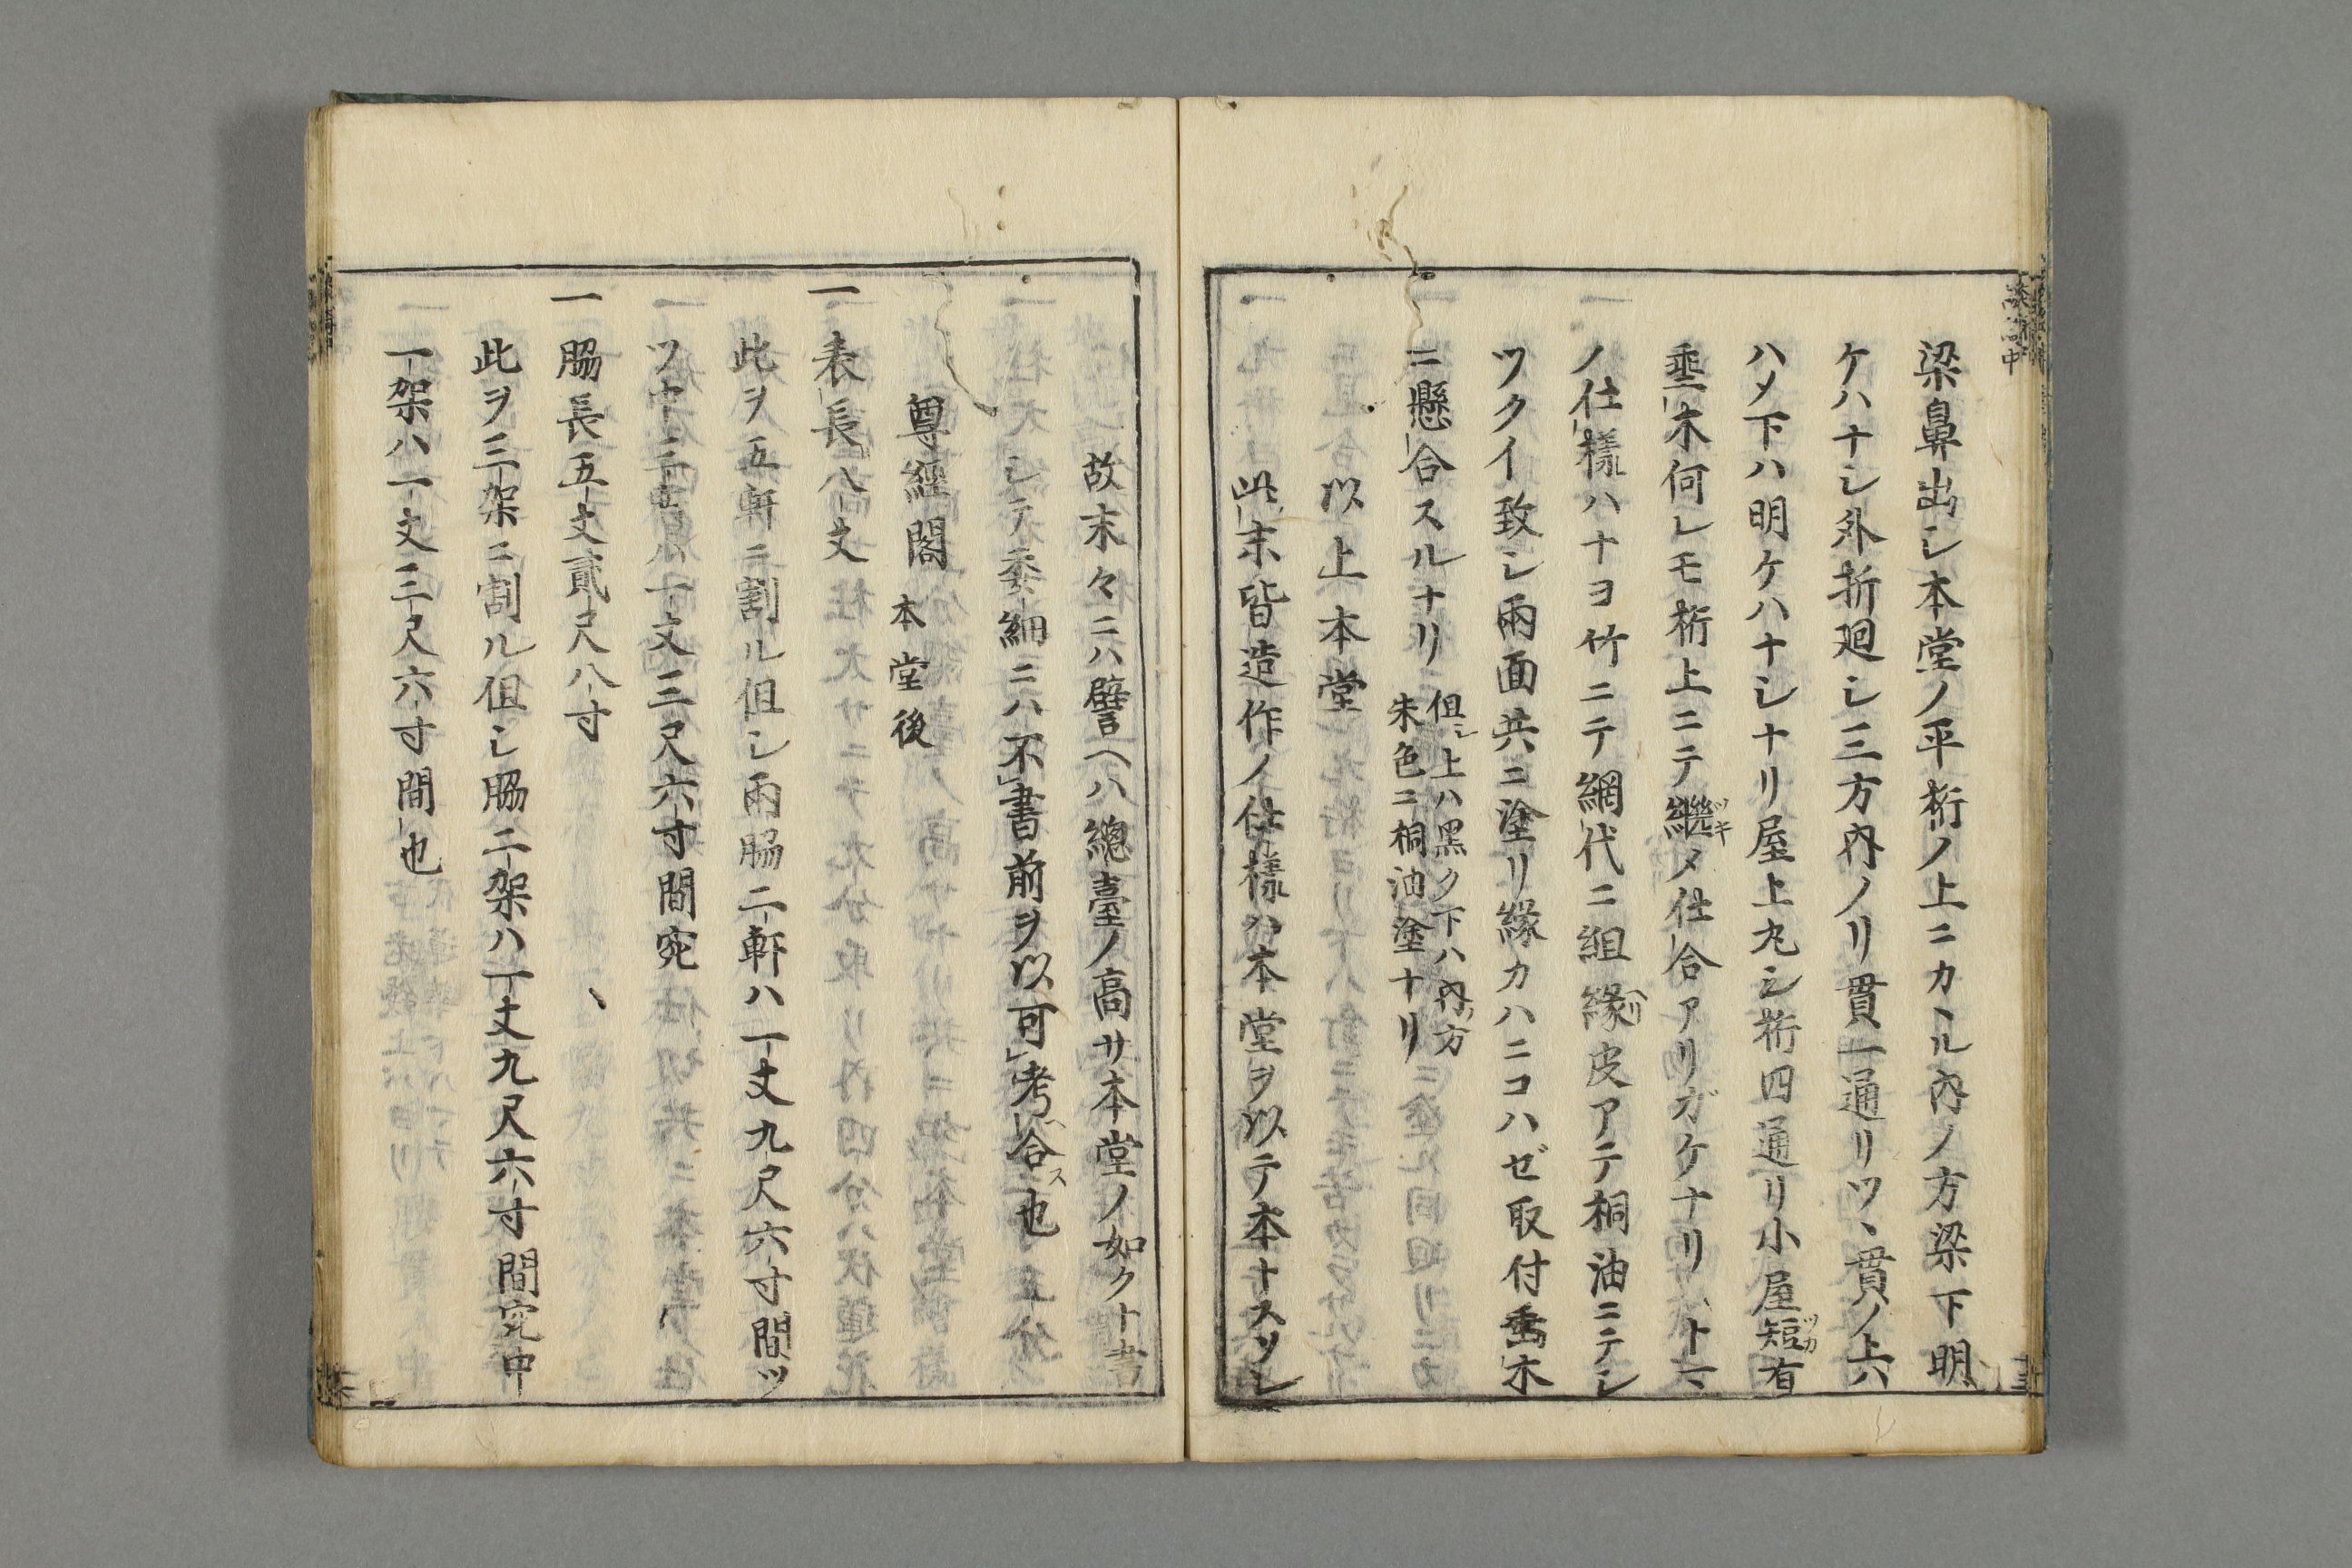 梁鼻出シ本堂ノ平桁ノ上ニカヽル內ノ方梁下明
ケハナシ外折廻シ三方內ノリ貫一通リツヽ貫ノ上ハ
ハメ下ハ明ケハナシナリ屋上丸シ桁四通リ小屋短ツカ有
垂木何レモ桁上ニテ繼ツキメ仕合アリガケナリ、ト
ノ仕樣ハナヨ竹ニテ網代ニ組緣ヘリ皮アテ桐油ニテシ
ツクイ致シ兩面共ニ塗リ緣カハニコハゼ取付垂木
ニ懸合スルナリ
但シ上ハ黑ク下ハ內ノ方
朱色ニ桐油塗ナリ
以上本堂
此末皆造作ノ仕樣ハ本堂ヲ以テ本トスソレ
故末々ニハ譬ヘハ總臺ノ高サ本堂ノ如クト書
シテ委細ニハ不書前ヲ以可考ヘ合ス也
尊經閣 本堂後
一表長八丈
此ヲ五軒ニ割ル但シ兩脇二軒ハ一丈九尺六寸間ツ
ツ中三軒ハ一丈三尺六寸間宛
一脇長五丈貳尺八寸
此ヲ三架ニ割ル但シ脇二架ハ一丈九尺六寸間宛中
一架ハ一丈三尺六寸間也